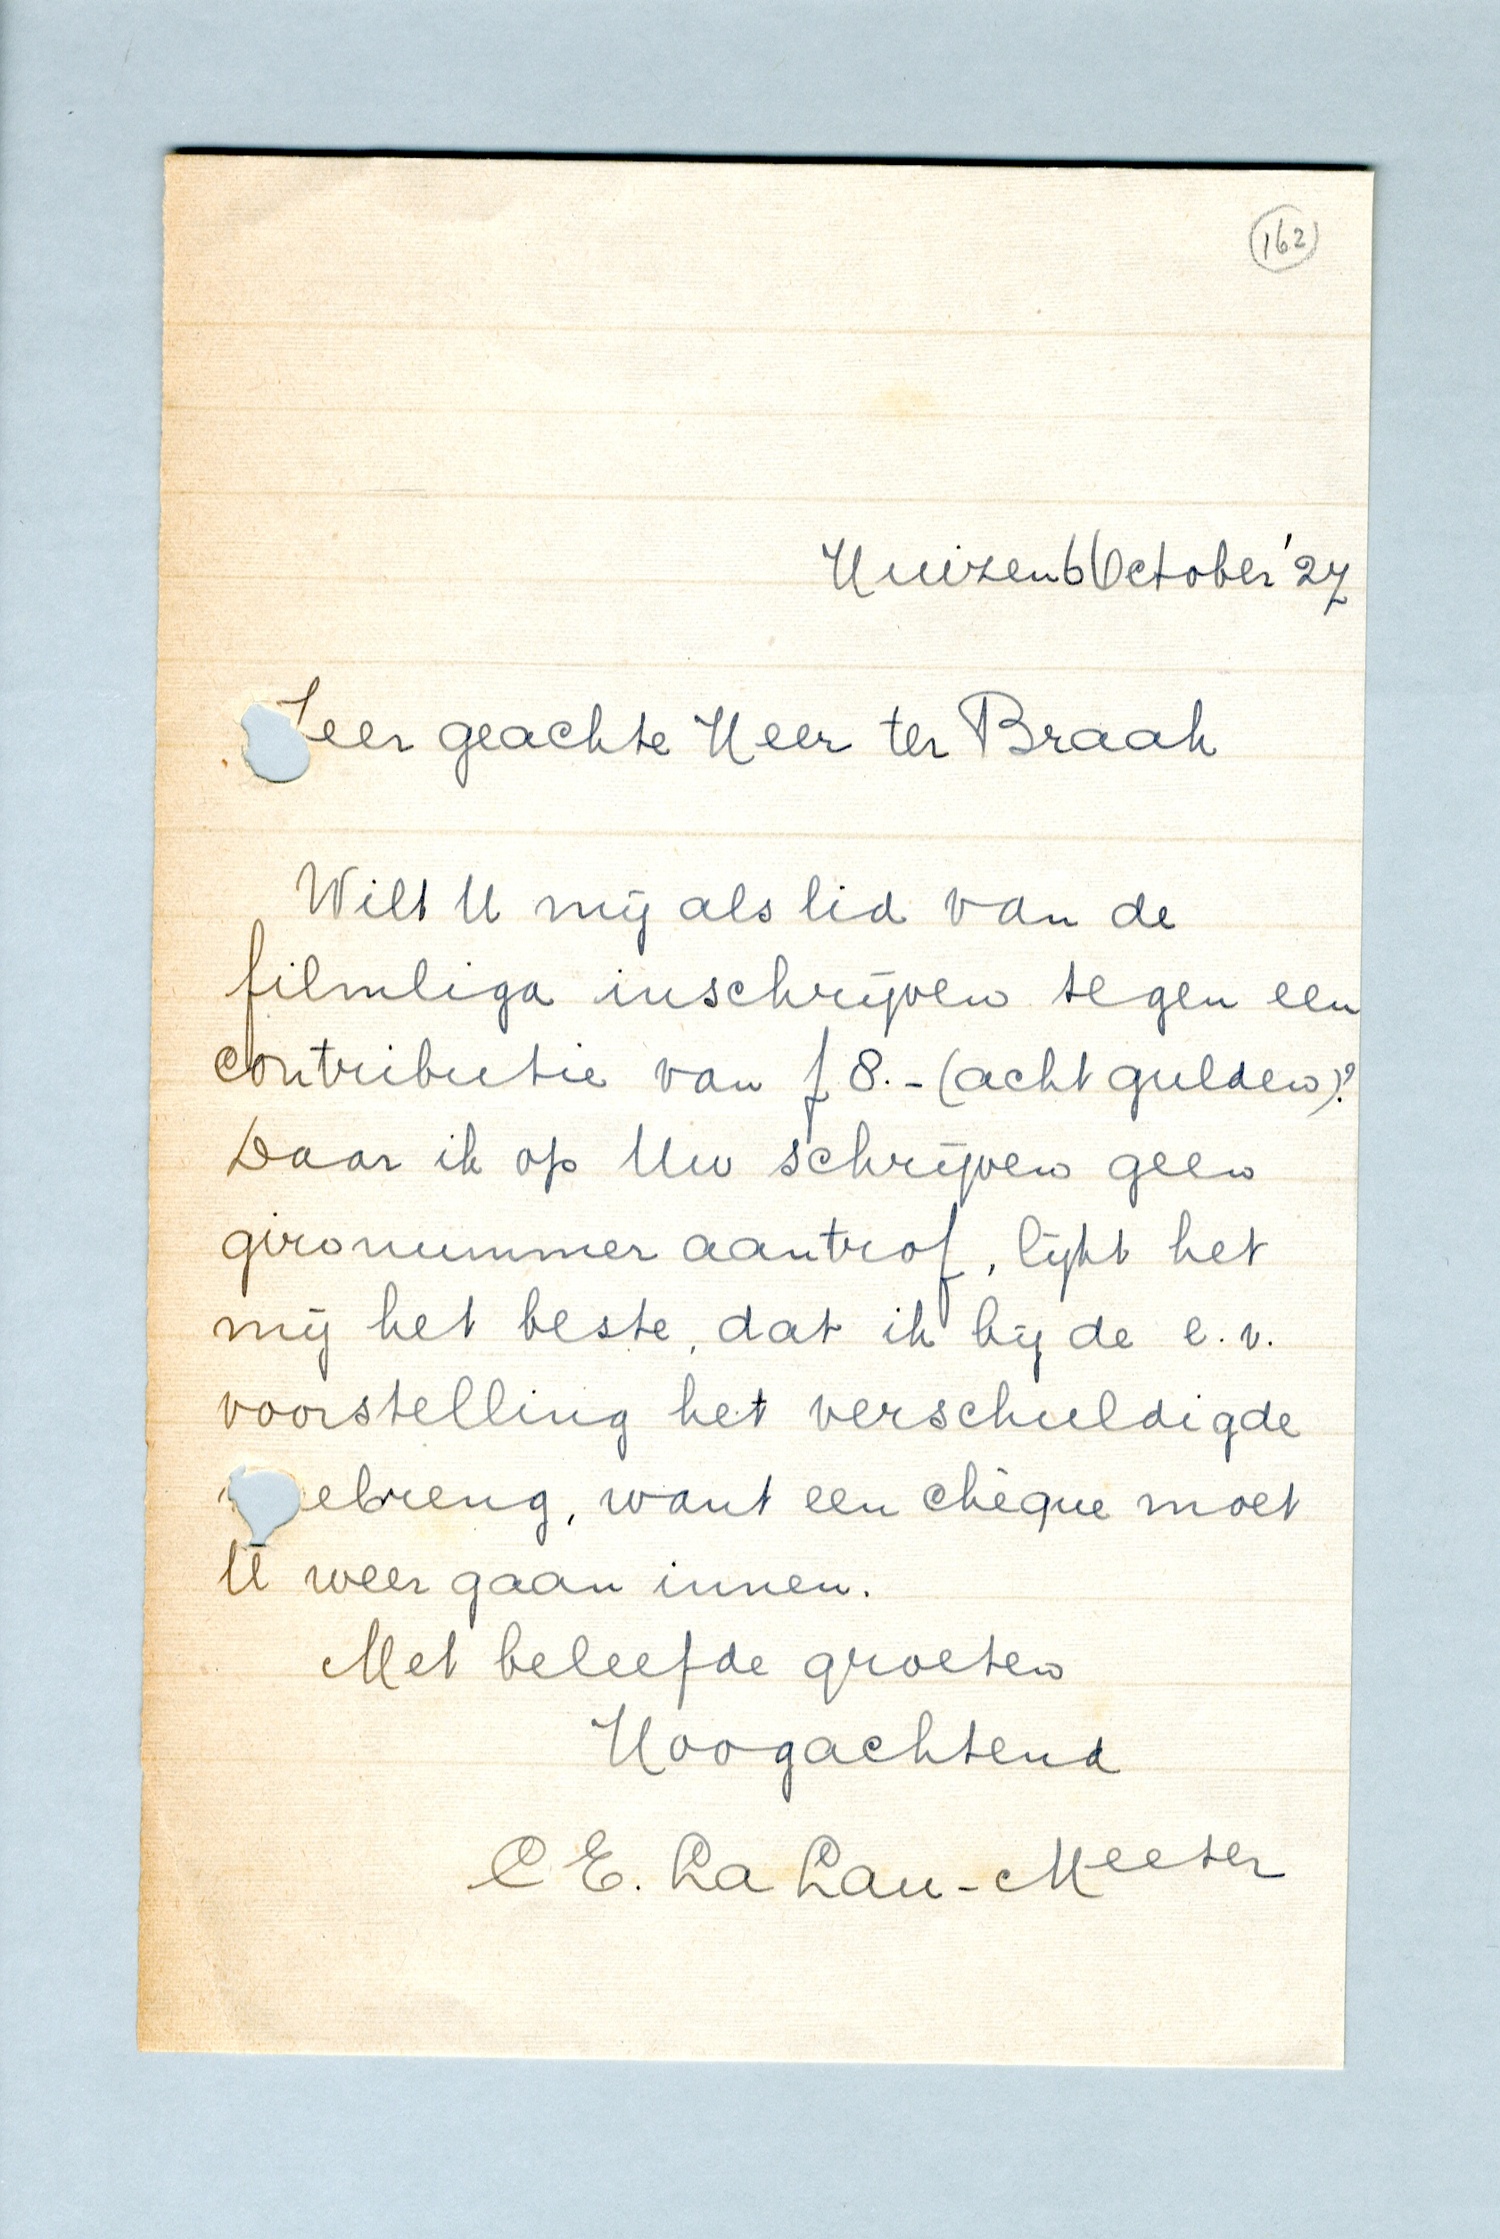 162
Huizen 6 October '27
Zeer geachte Heer ter Braak
Wilt U mij als lid van de
filmliga inschrijven tegen een
contributie van f 8.- (acht gulden)?
Daar ik op Uw schrijven geen
gironummer aantrof, lijkt het
mij het beste, dat ik bij de e.v.
voorstelling het verschuldigde
ebreng, want een chèque moet
U weer gaan innen.
Met beleefde groeten
Hoogachtend
C E. La Lau - Meeter